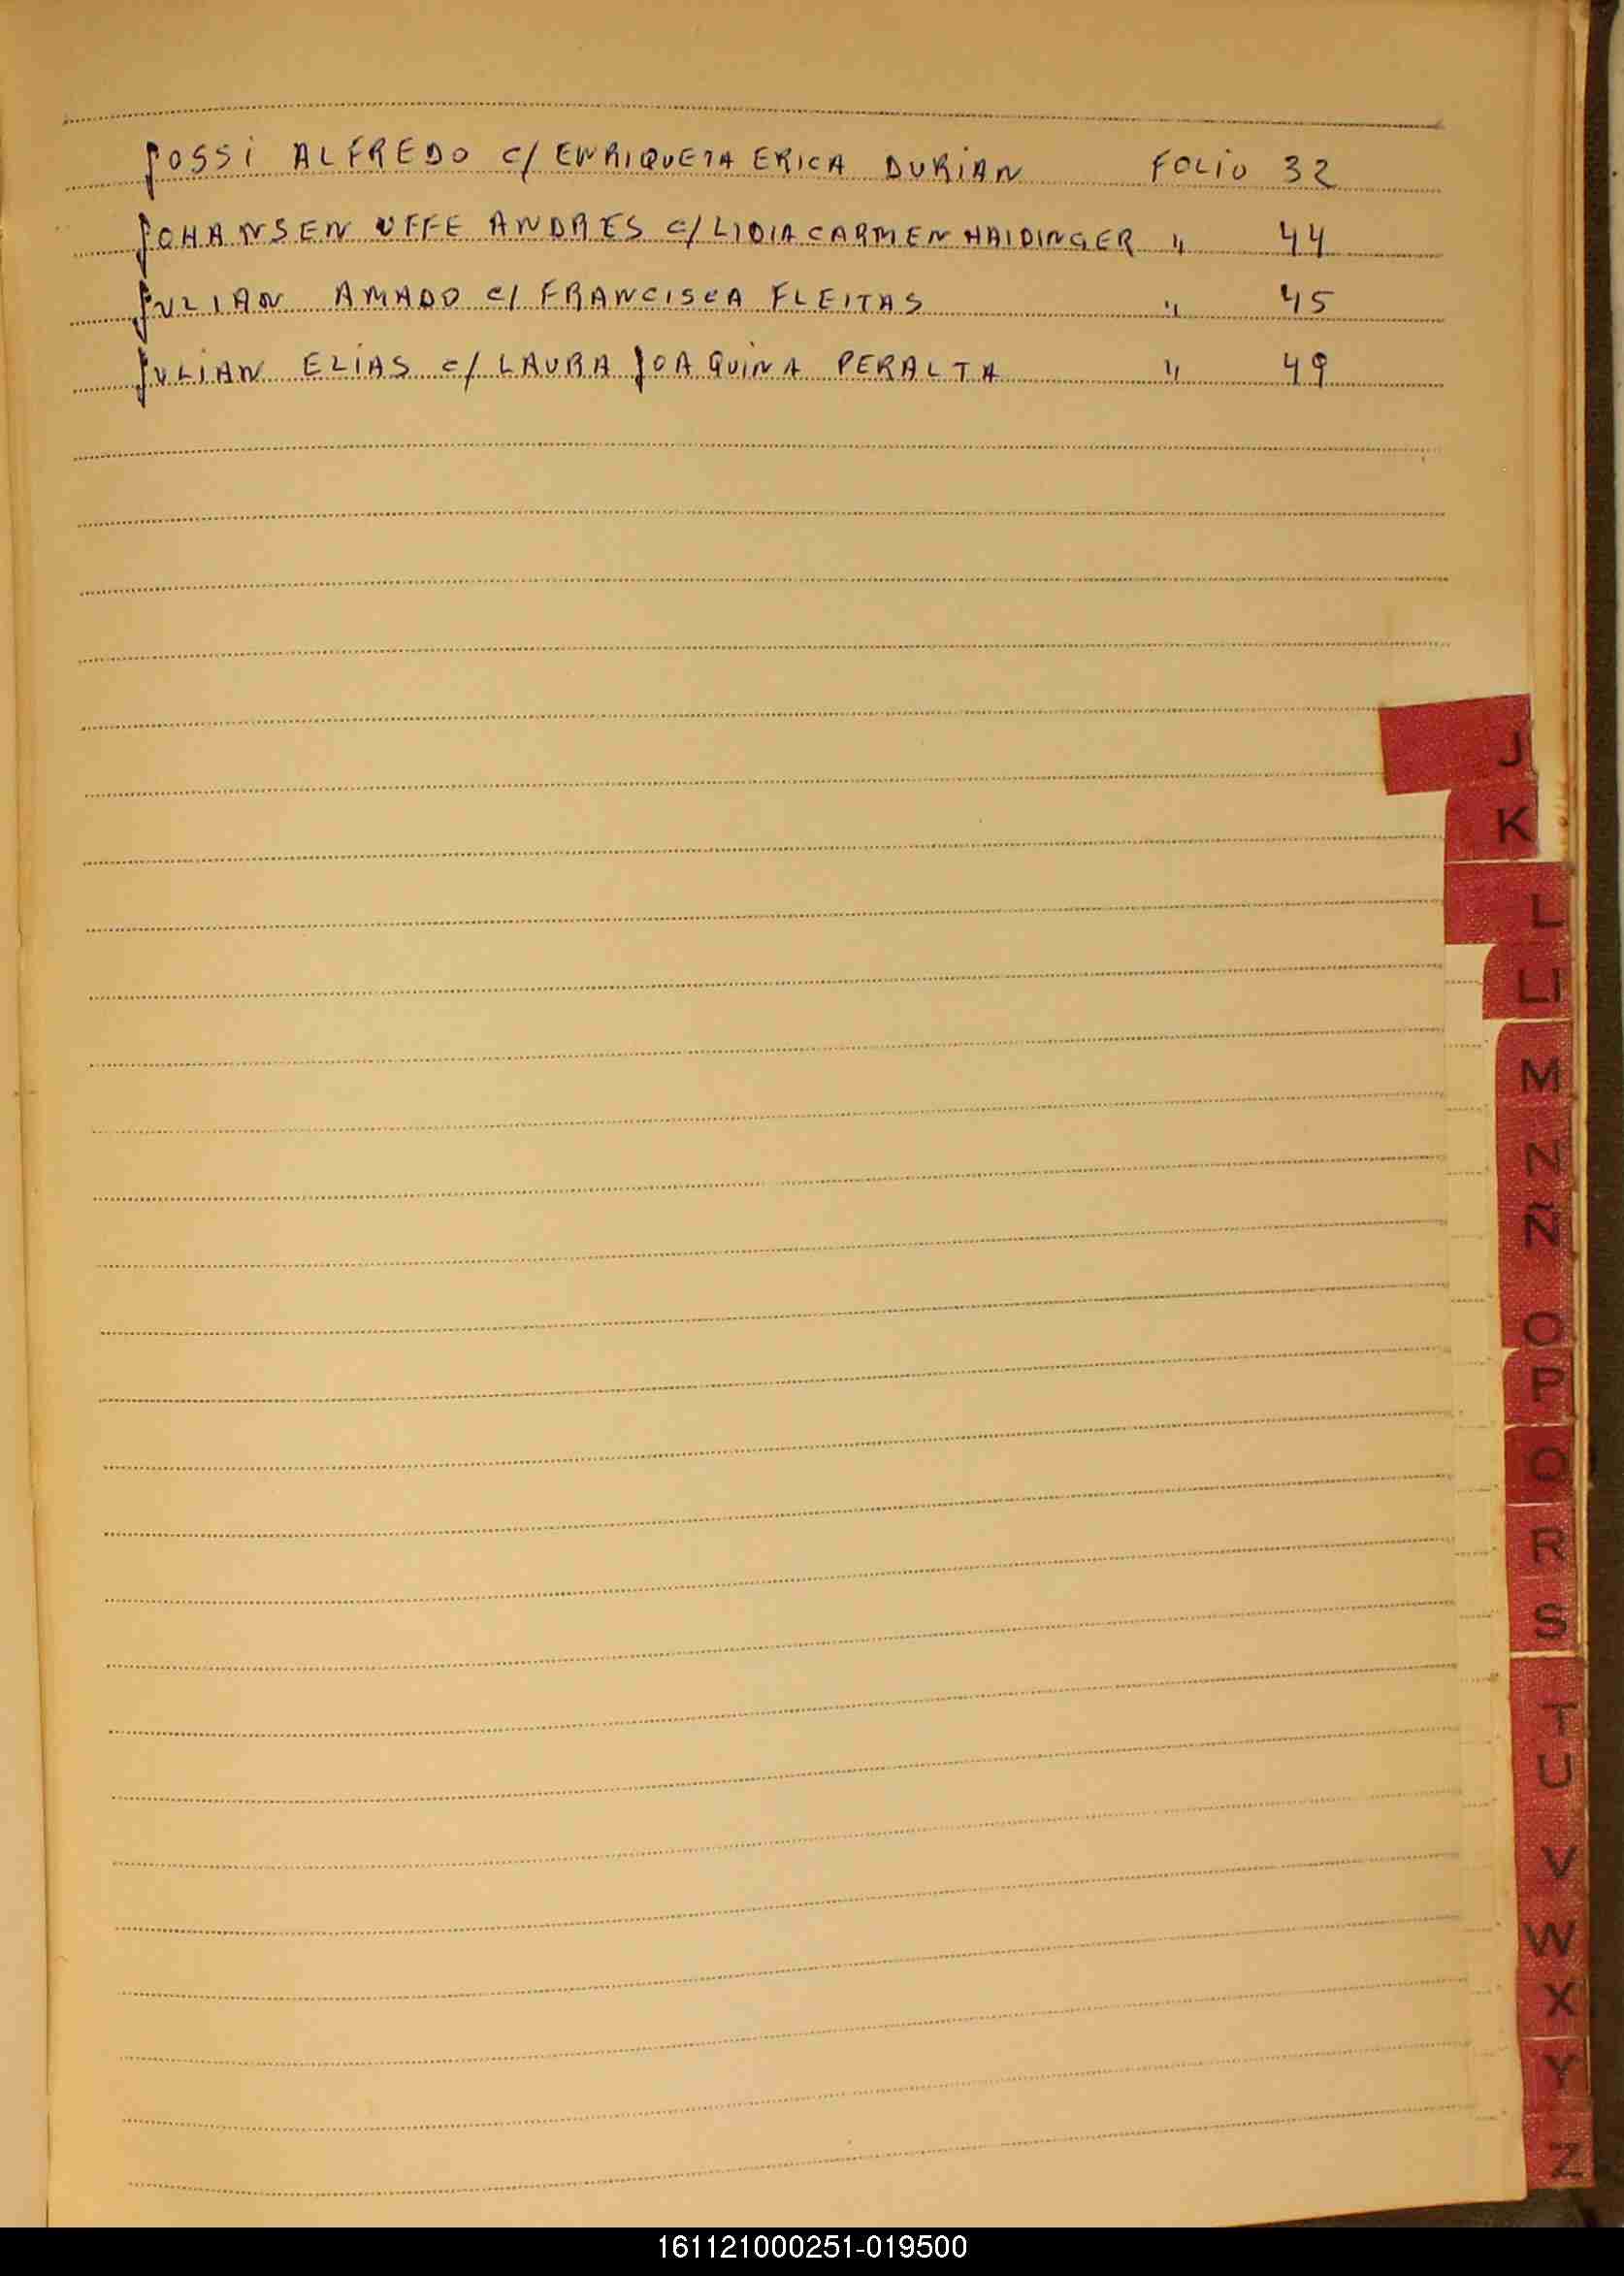 JOSSI ALFREDO C/ ENRIQUETA ERICA DURIAN FOLIO 32
JOHANSEN UFFE ANDRES C/ LIDIA CARMEN HAIDINGER " 44
JULIAN AMADO C/ FRANCISCA FLEITAS " 45
JULIAN ELIAS C/ LAURA JOAQUINA PERALTA " 49
J
K
L
Ll
M
N
Ñ
O
P
Q
R
S
T
U
V
W
X
Y
Z
161121000251-019500